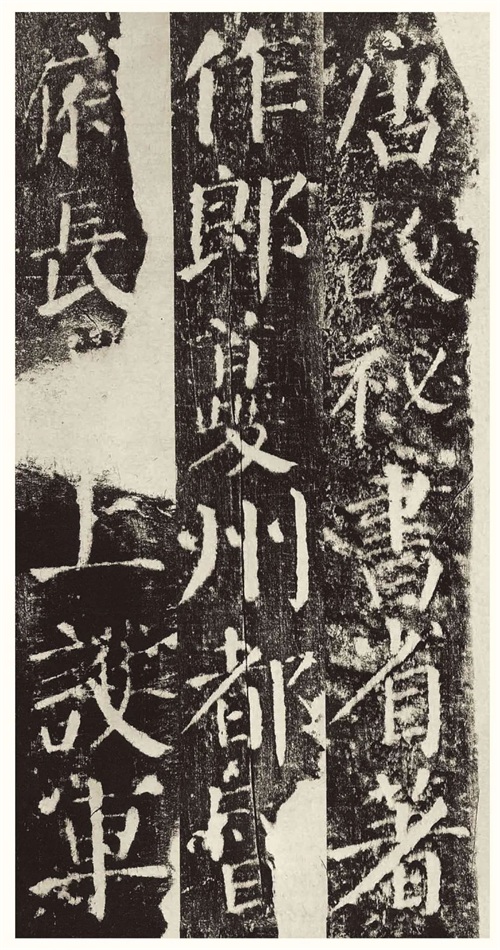 唐故秘書省著
作郎夔州都督
府長上護軍